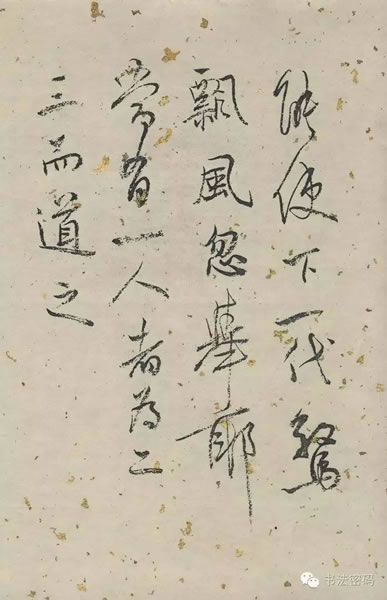 能使下一代驚
飄風忽舉耶
常一人者为二
三而道之
书法密码